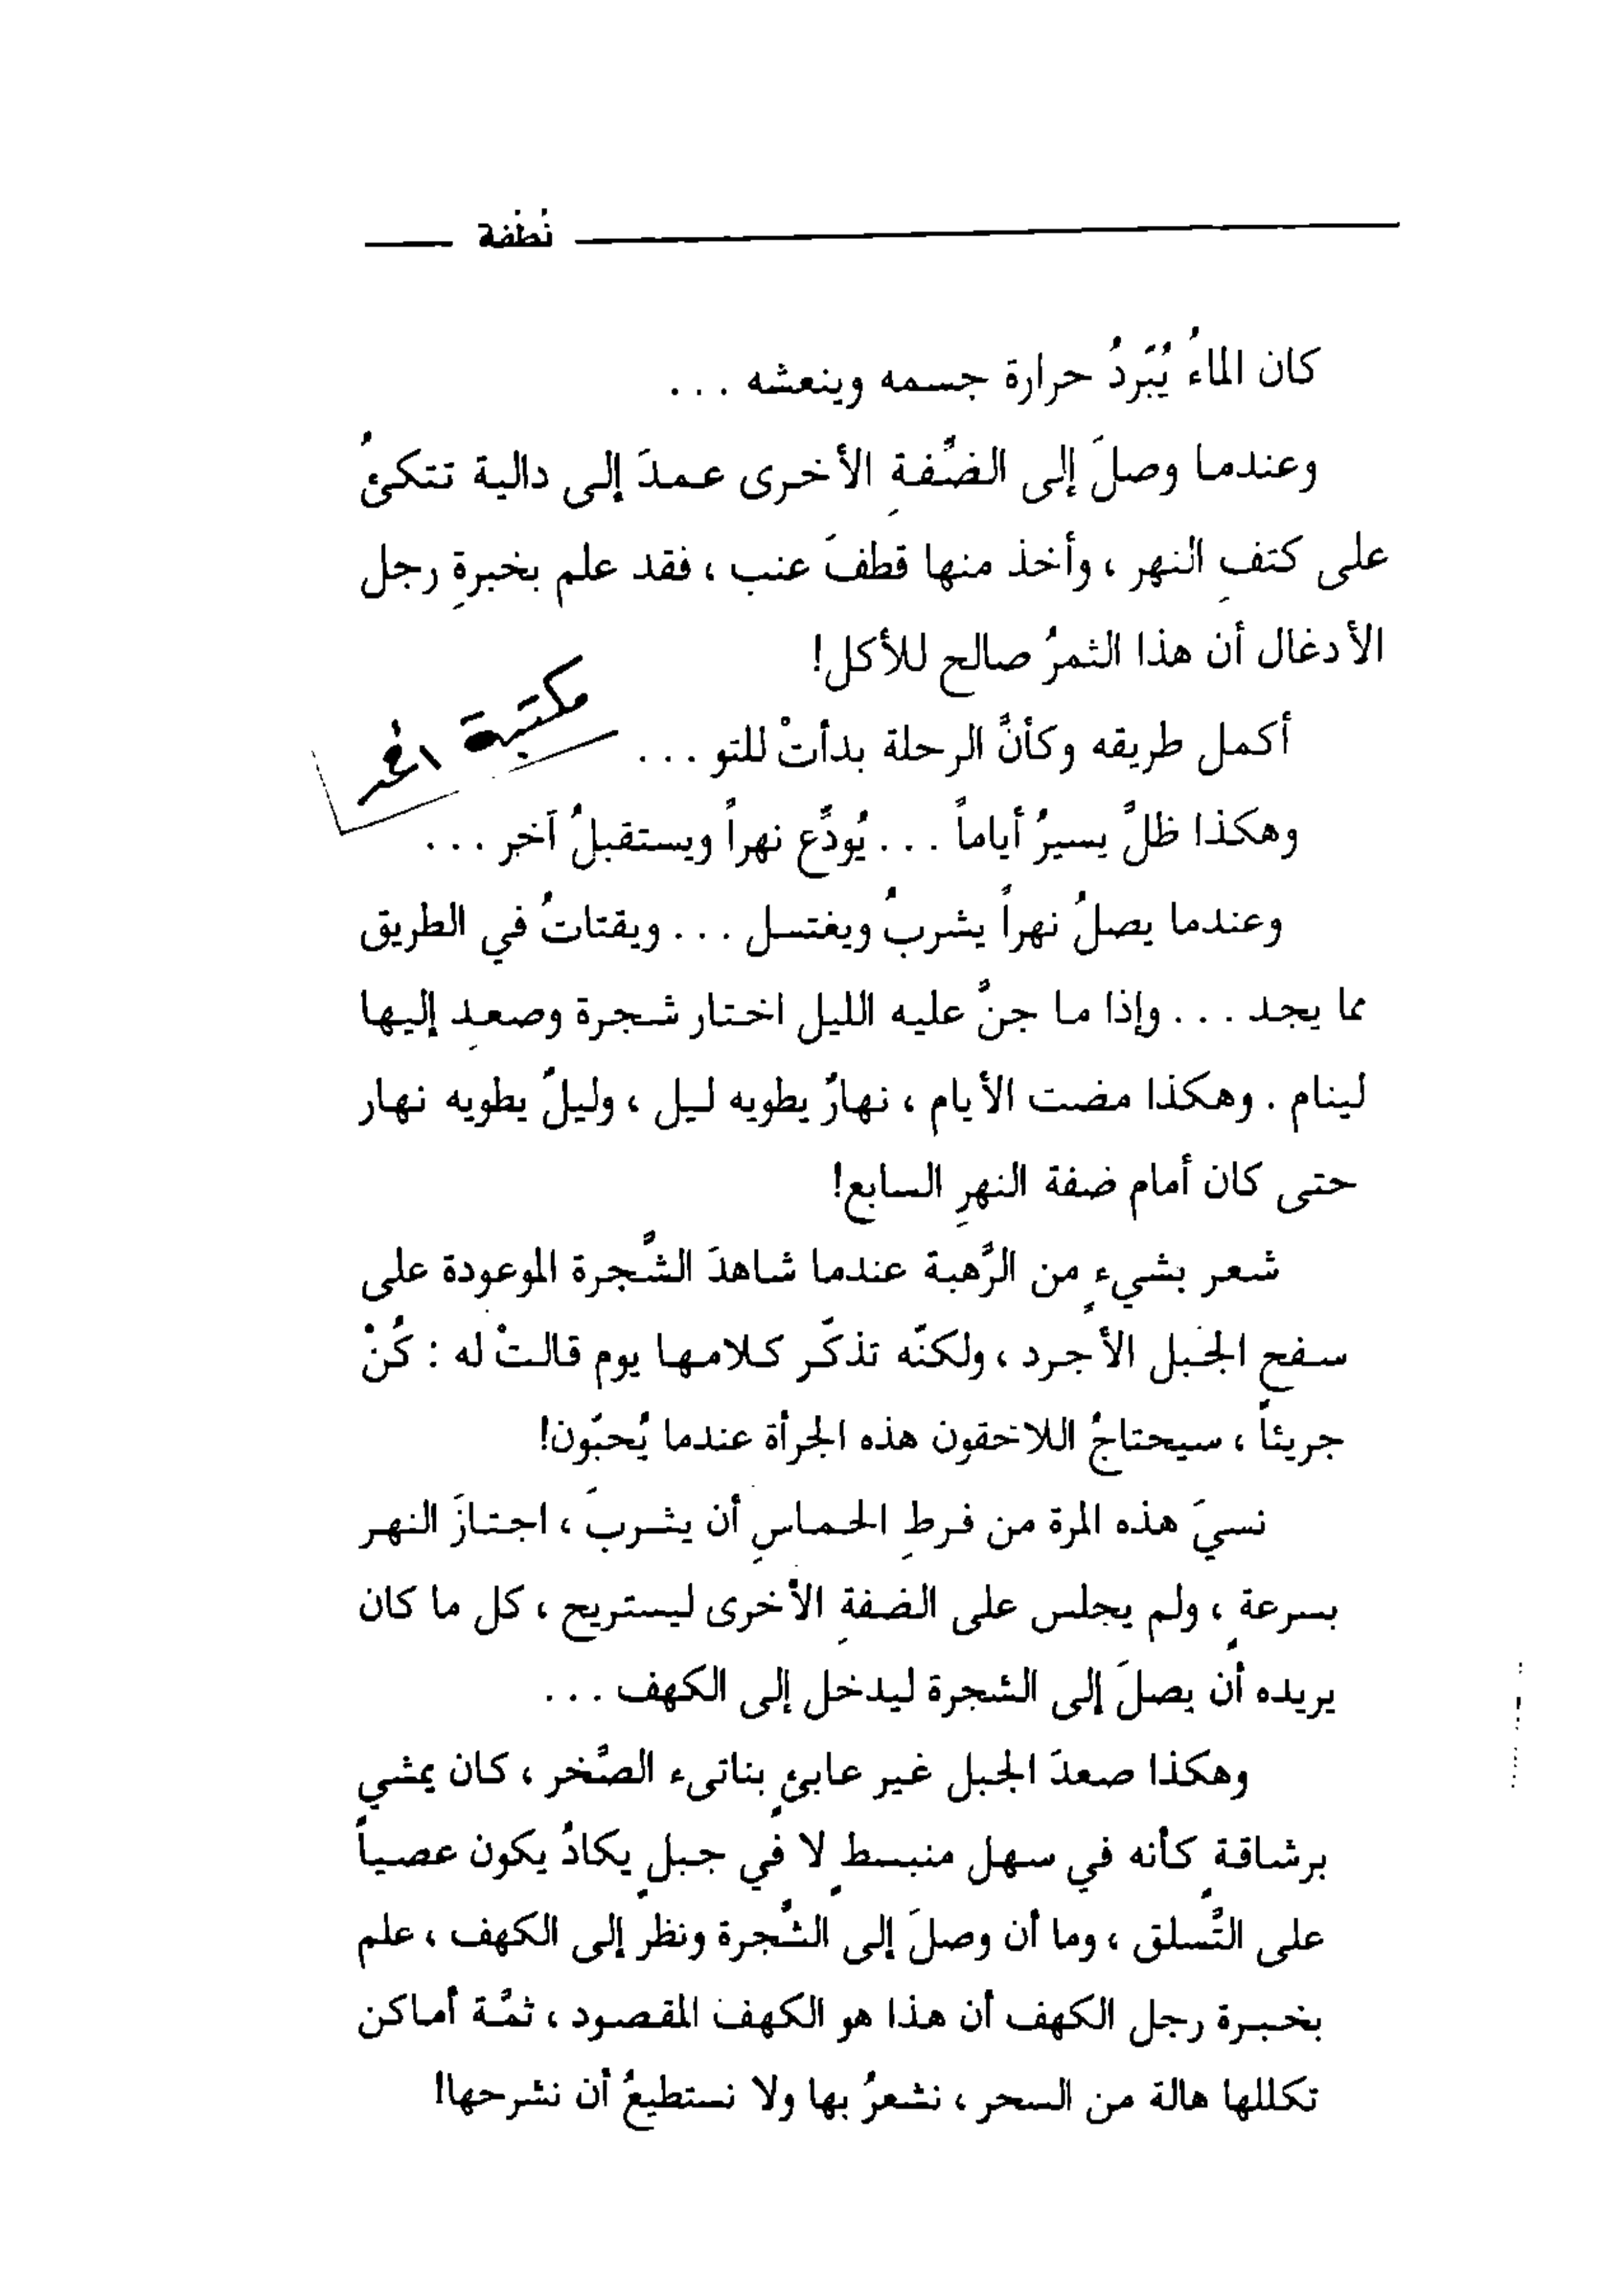 نُطْفة
كان الماءُ يُبَردُ حرارة جسمه وينعشه ...
وعندما وصلَ إلى الضّفةِ الأخرى عمدَ إلى دالية تتكئُ
على كتفِ النهر ، وأخذ منها قطفَ عنب ، فقد علم بخبرةِ رجل
الأدغال أن هذا الثمرُ صالح للأكل!
مكتبة
أكمل طريقه وكأنَّ الرحلة بدأتْ للتو ...
وهكذا ظلَّ يسيرُ أياماً ... يُودِّع نهراً ويستقبلُ آخر ...
وعندما يصلُ نهراً يشربُ ويغتسل ... ويقتاتُ في الطريق
مما يجد ... وإذا ما جنَّ عليه الليل اختار شجرة وصعدِ إليها
لينام . وهكذا مضت الأيام ، نهارٌ يطويه ليل ، وليلٌ يطويه نهار
حتى كان أمام ضفة النهرِ السابع!
شعر بشيءٍ من الرَّهبة عندما شاهدَ الشَّجرة الموعودة على
سفحِ الجبل الأجرد ، ولكنّه تذكّر كلامها يوم قالتْ له : كُنْ
جريئاً ، سيحتاجُ اللاحقون هذه الجرأة عندما يُحبّون!
نسيَ هذه المرة من فرطِ الحماسِ أن يشربَ ، اجتازَ النهر
بسرعةٍ ، ولم يجلس على الضفةِ الأخرى ليستريح ، كل ما كان
يريده أن يصلَ إلى الشجرة ليدخل إلى الكهف ...
وهكذا صعدَ الجبل غير عابئٍ بناتىء الصَّخر ، كان يمشي
برشاقةٍ كأنه في سهل منبسطٍ لا في جبلٍ يكادُ يكون عصياً
على التَّسلق ، وما أن وصلَ إلى الشَّجرة ونظر إلى الكهف ، علم
بخبرة رجل الكهف أن هذا هو الكهف المقصود ، ثمَّة أماكن
تكللها هالة من السحر ، نشعرُ بها ولا نستطيعُ أن نشرحها!